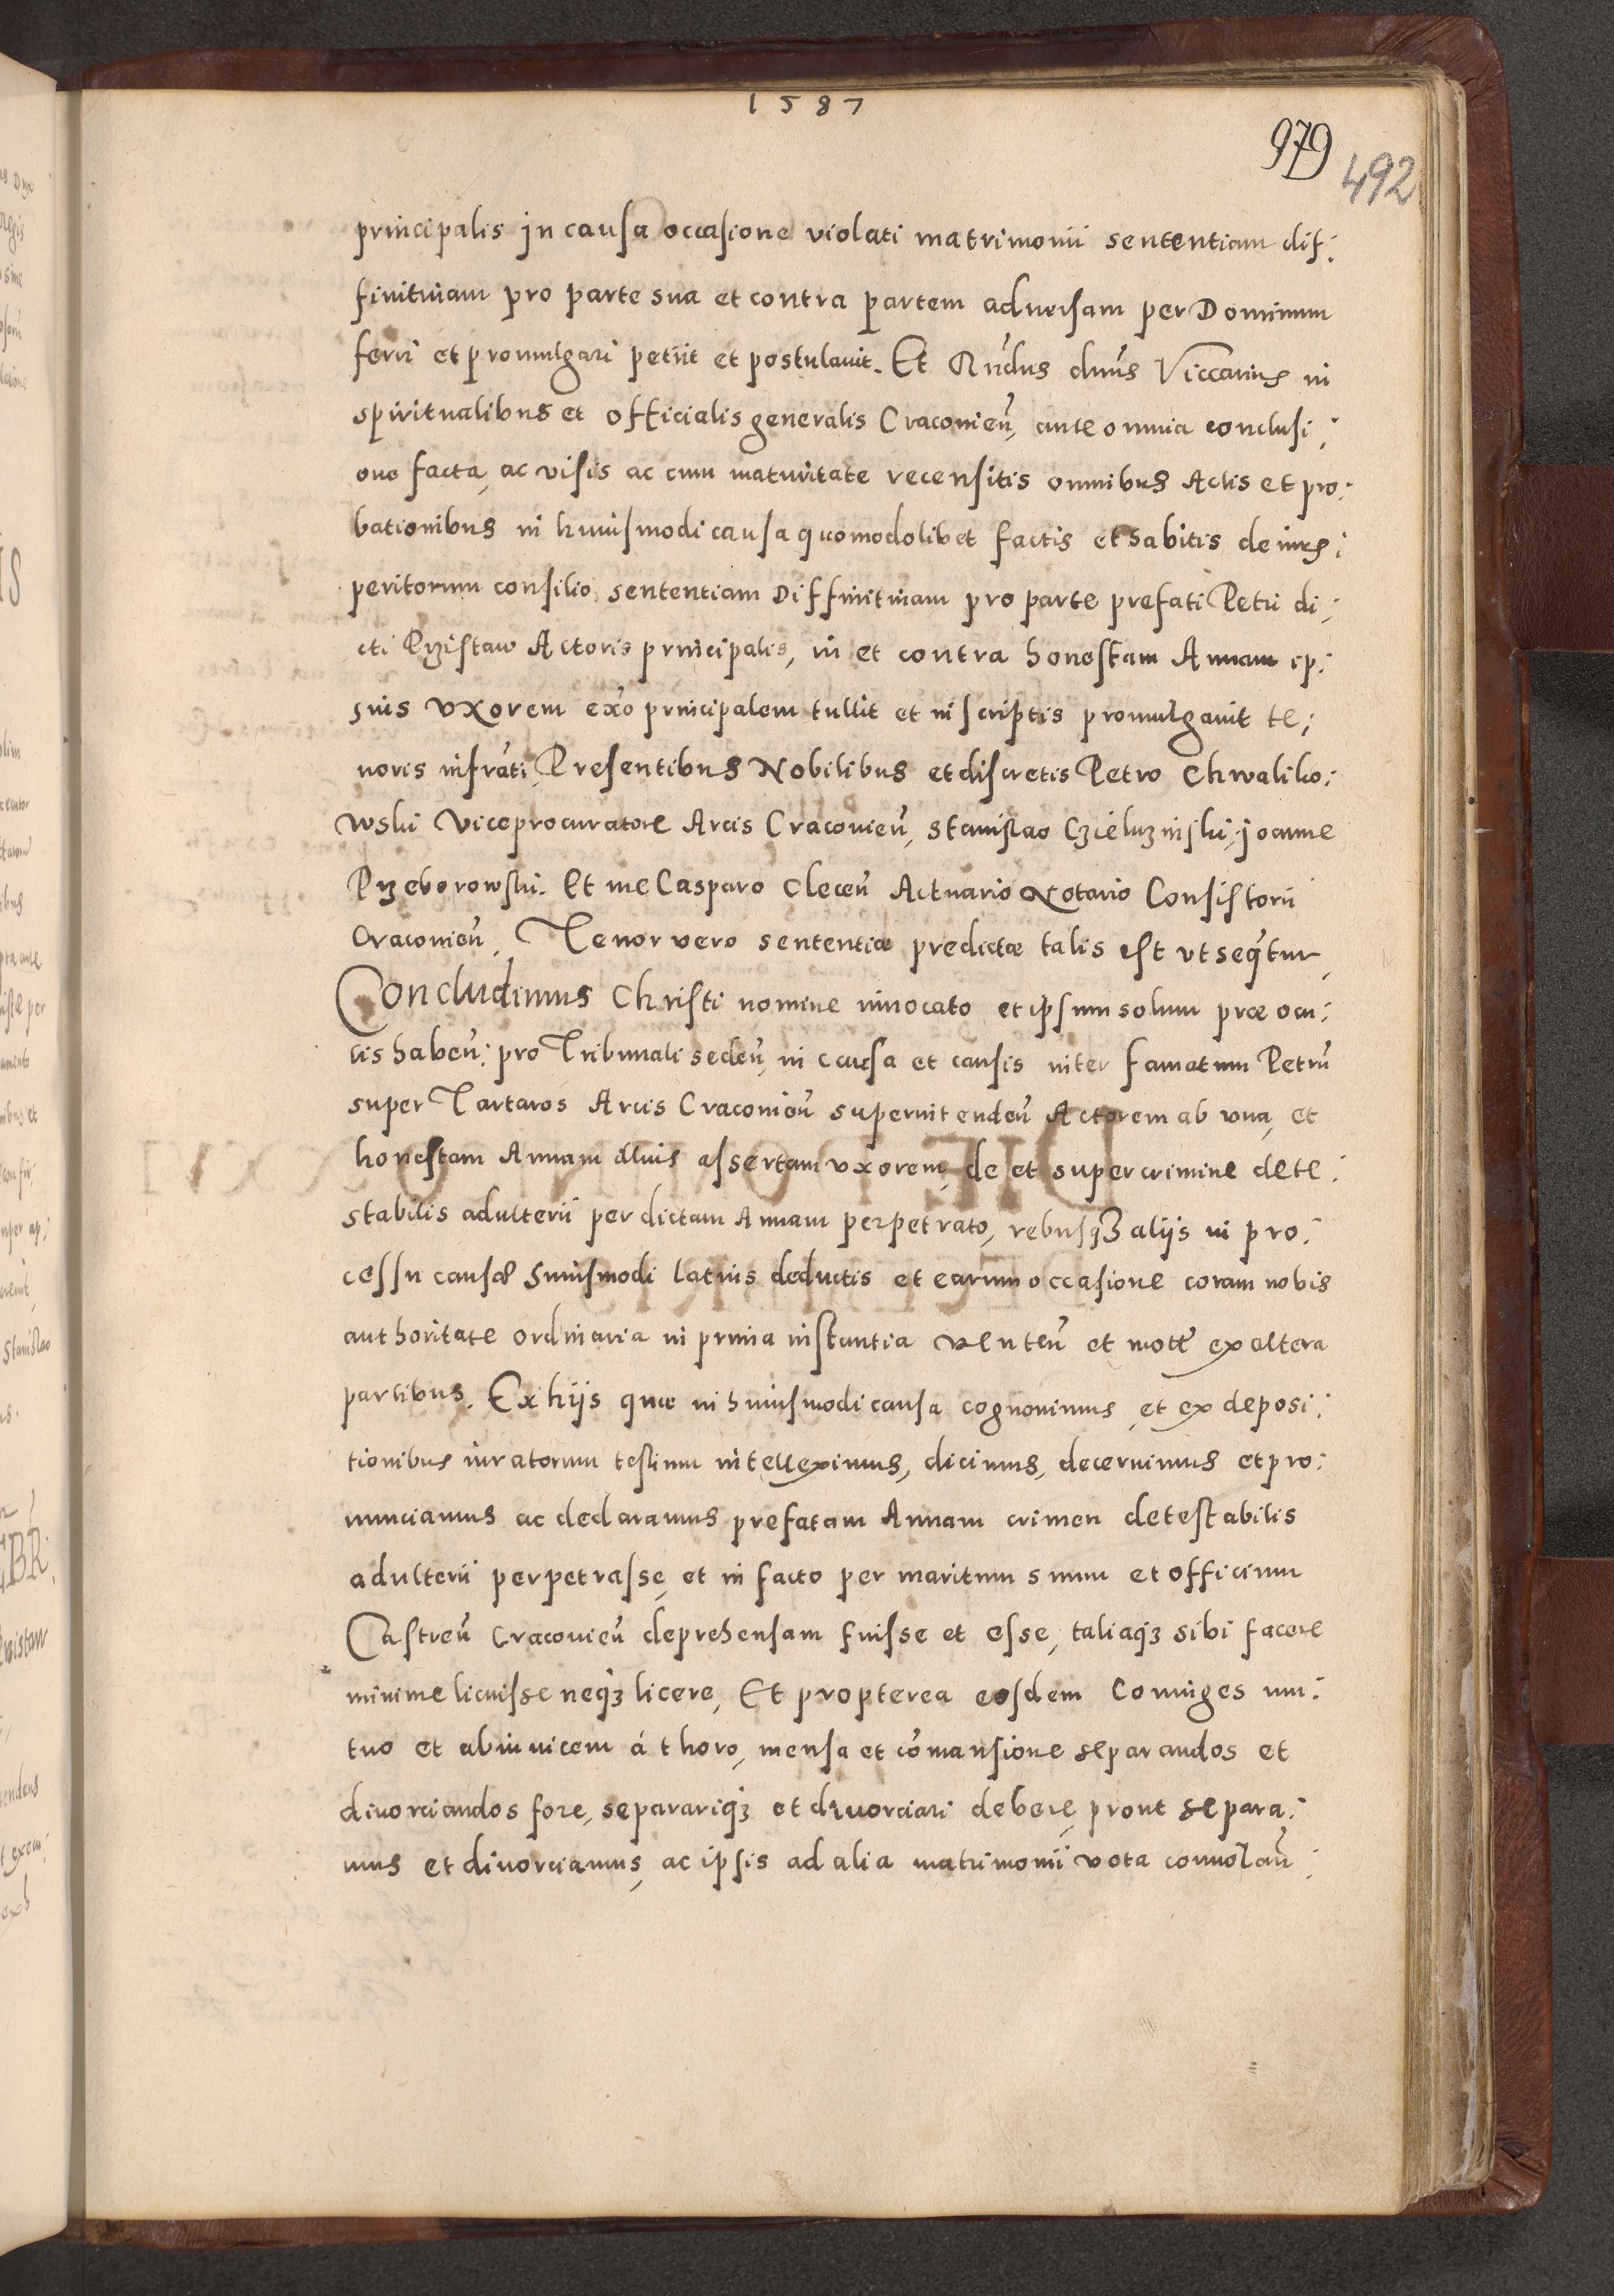 1587
979
492
principalis in causa occasione violati matrimonii sententiam dif:
finitiuam pro parte sua et contra partem aduersam per Dominum
ferri et promulgari petiit et postulauit. Et Rndus dnus Viccarius in
spiritualibus et officialis generalis Cracouien, ante omnia conclusi:
one facta, ac visis ac cum maturitate recensitis omnibus Actis et pro:
bationibus in huiusmodi causa quomodolibet factis et habitis de iuris:
peritorum consilio, sententiam Diffinitiuam pro parte prefati Petri di:
cti Pzistaw Actoris principalis, in et contra honestam Annam ip:
sius vxorem exo principalem tullit et in scriptis promulgauit te:
noris infrati, Presentibus Nobilibus et discretis Petro Chwaliko:
wski Viceprocuratore Arcis Cracouien, Stanislao Czieluzniski, Joanne
Pzeborowski. Et me Casparo Clecen Actuario Notario Consistorii
Cracouien, Tenor vero sententiæ predictæ talis est vt seqtur,
Concludimus Christi nomine inuocato et ipsum solum præ ocu:
lis haben: pro Tribunali seden, in causa et causis inter famatum Petru
super Tartaros Arcis Cracouien superintenden Actorem ab vna, et
honestam Annam illius assertam vxorem, de et super crimine dete:
stabilis adulterii per dictam Annam perpetrato, rebusq3 aliis in pro:
cessu causæ huiusmodi latius deductis et earum occasione coram nobis
authoritate ordinaria in prima instantia verten et mote ex altera
partibus. Ex hijs quæ in huiusmodi causa cognouimus, et ex deposi:
tionibus iuratorum testium intelleximus, dicimus, decernimus et pro:
nunciamus ac declaramus prefatam Annam crimen detestabilis
adulterii perpetrasse, et in facto per maritum suum et officium
Castren Cracouien deprehensam fuisse et esse, taliaq3 sibi facere
minime licuisse neq3 licere, Et propterea eosdem Coniuges mu:
tuo et abinuicem á thoro, mensa et comansione separandos et
diuorciandos fore, separariq3 et diuorciari debere, prout separa:
mus et diuorciamus, ac ipsis ad alia matrimonii vota conuolan: